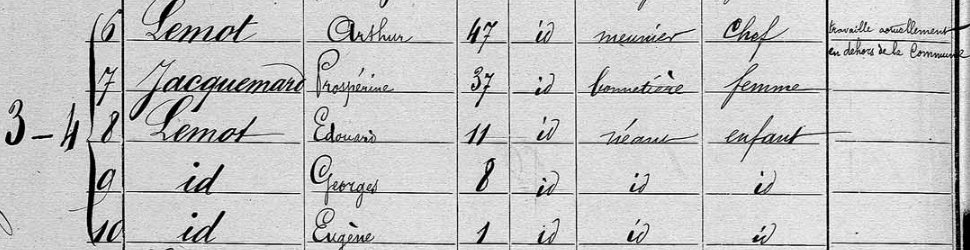 6 Lemot Arthur 47 id meunier Chef travaille actuellement
en dehors de la Commune
7 Jacquemard Prospérine 37 id bonnetière femme
3-4 8 Lemot Edouard 11 id néant enfant
9 id Georges 8 id id id
10 id Eugène 1 id id id